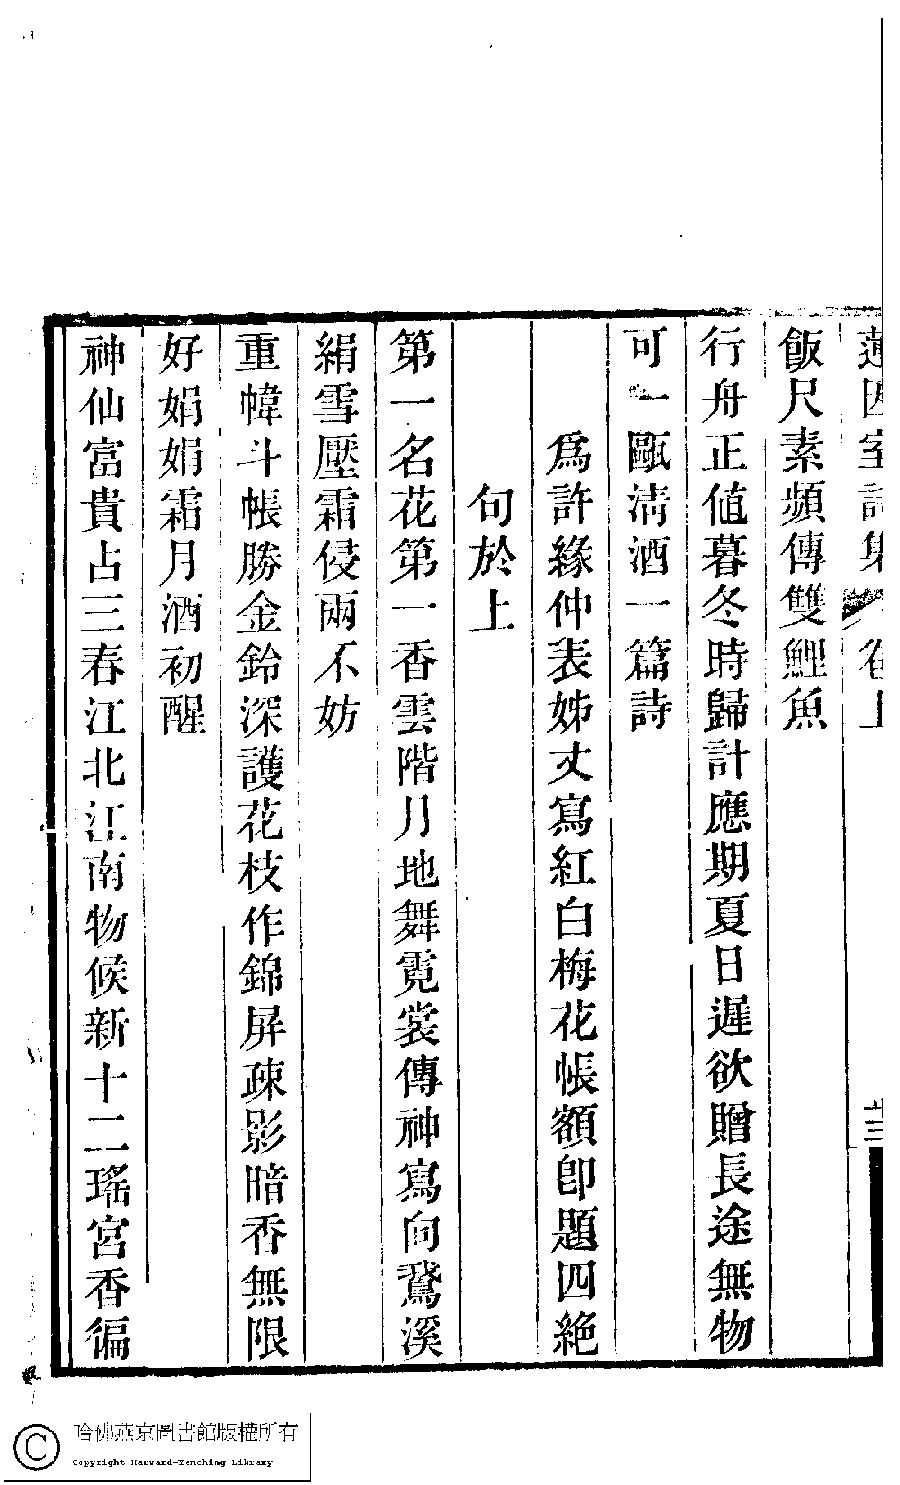 蓮因室詩集 卷上
十三
飯尺素頻傳雙鯉魚
行舟正値暮冬時歸計應期夏日遲欲贈長途無物
可一甌淸酒一篇詩
爲許緣仲表姊丈寫紅白梅花帳額卽題四絶
句於上
第一名花第一香雲階月地舞霓裳傳神寫向鵞溪
絹雪壓霜侵兩不妨
重幃斗帳勝金鈴深護花枝作錦屏疎影暗香無限
好娟娟霜月酒初醒
神仙富貴占三春江北江南物候新十二瑤宮香徧
哈佛燕京圖書館版權所有
Copyright Harvard-Yenching Library